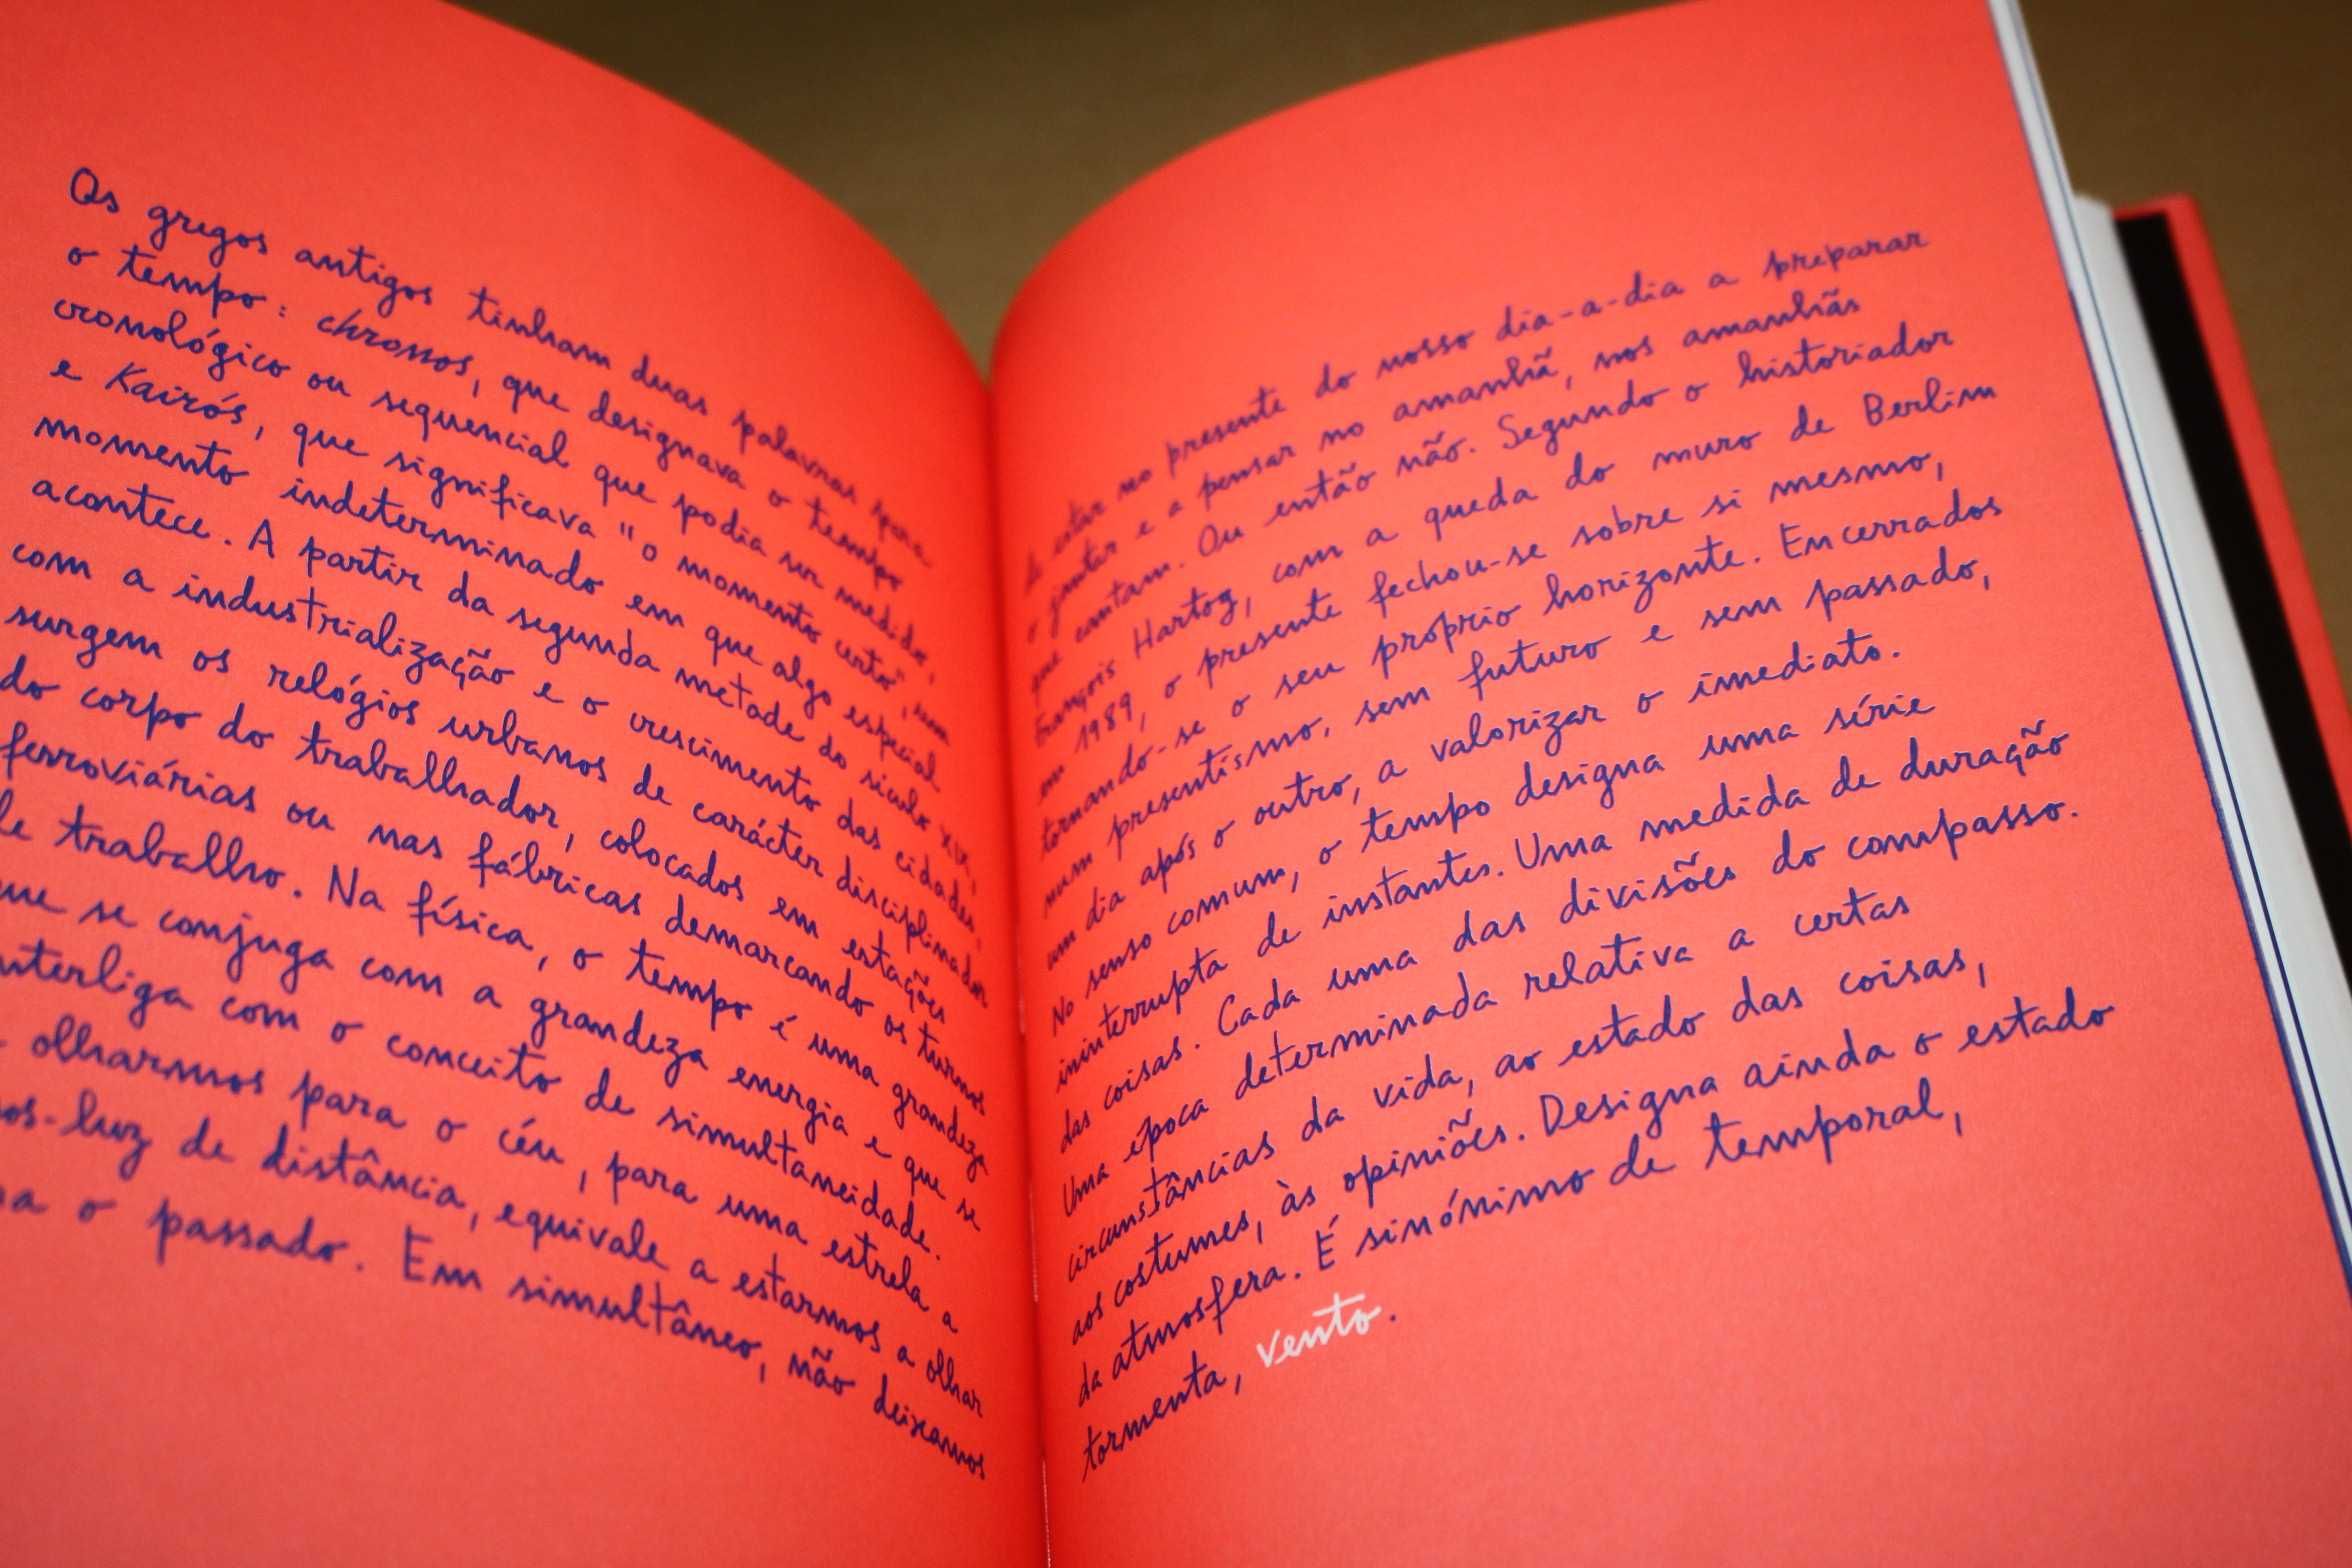 Os gregos antigos tinham duas palavras para
o tempo: chronos, que designava o tempo
cronológico ou sequencial que podia ser medido,
e Kairós, que significava "o momento certo", um
momento indeterminado em que algo especial
acontece. A partir da segunda metade do século XIX,
com a industrialização e o crescimento das cidades,
surgem os relógios urbanos de carácter disciplinador
do corpo do trabalhador, colocados em estações
ferroviárias ou nas fábricas demarcando os turnos
de trabalho. Na física, o tempo é uma grandeza
que se conjuga com a grandeza energia e que se
interliga com o conceito de simultaneidade.
olharmos para o céu, para uma estrela a
anos-luz de distância, equivale a estarmos a olhar
o passado. Em simultâneo, não deixamos
de estar no presente do nosso dia-a-dia a preparar
o jantar e a pensar no amanhã, nos amanhãs
que cantam. Ou então não. Segundo o historiador
François Hartog, com a queda do muro de Berlim
em 1989, o presente fechou-se sobre si mesmo,
tornando-se o seu próprio horizonte. Encerrados
num presentismo, sem futuro e sem passado,
um dia após o outro, a valorizar o imediato.
No senso comum, o tempo designa uma série
ininterrupta de instantes. Uma medida de duração
das coisas. Cada uma das divisões do compasso.
Uma época determinada relativa a certas
circunstâncias da vida, ao estado das coisas,
aos costumes, às opiniões. Designa ainda o estado
da atmosfera. É sinónimo de temporal,
tormenta, vento.